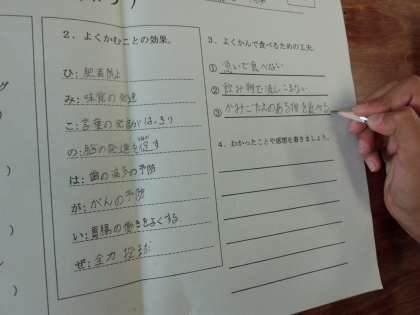 2．よくかむことの効果。
ひ：肥満防止
み：味覚の発達
こ：言葉の発音がはっきり
の：脳の発達を促す
は：歯の病気の予防
が：がんの予防
い：胃腸の働きをよくする
ぜ：全力投球
3．よくかんで食べるための工夫。
① 急いで食べない
② 飲み物で流しこまない
③ かみごたえのある物を食べる
4．わかったことや感想を書きましょう。